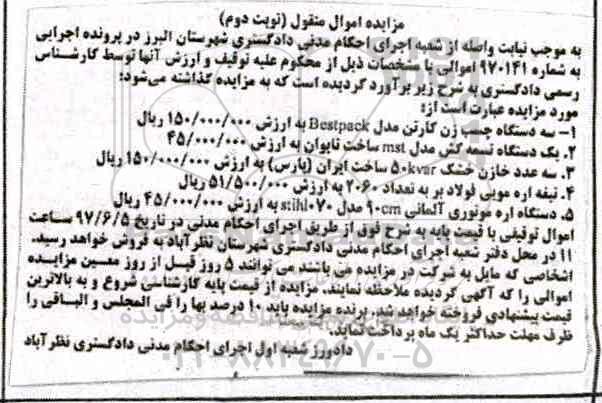 مزایده اموال منقول (نوبت دوم)
به موجب نیابت واصله از شعبه اجرای احکام مدنی دادگستری شهرستان البرز در پرونده اجرایی
به شماره ۹۷۰۱۴۱ اموالی با مشخصات ذیل از محکوم علیه توقیف و ارزش آنها توسط کارشناس
رسمی دادگستری به شرح زیر برآورد گردیده است که به مزایده گذاشته می‌شود:
مورد مزایده عبارت است از:
۱- سه دستگاه چسب زن کارتن مدل Bestpack به ارزش ۱۵۰/۰۰۰/۰۰۰ ریال
۲. یک دستگاه تسمه کش مدل mst ساخت تایوان به ارزش ۴۵/۰۰۰/۰۰۰
۳. سه عدد خازن خشک ۵۰kvar ساخت ایران (پارس) به ارزش ۱۵۰/۰۰۰/۰۰۰ ریال
۴. تیغه اره مویی فولاد بر به تعداد ۲۰۶۰ به ارزش ۵۱/۵۰۰/۰۰۰ ریال
۵. دستگاه اره موتوری آلمانی ۹۰cm مدل stihl۰۷۰ به ارزش ۴۵/۰۰۰/۰۰۰ ریال
اموال توقیفی با قیمت پایه به شرح فوق از طریق اجرای احکام مدنی در تاریخ ۹۷/۶/۵ ساعت
۱۱ در محل دفتر شعبه اجرای احکام مدنی دادگستری شهرستان نظرآباد به فروش خواهد رسید.
اشخاصی که مایل به شرکت در مزایده می باشند می توانند ۵ روز قبل از روز معین مزایده
اموالی را که آگهی گردیده ملاحظه نمایند. مزایده از قیمت پایه کارشناسی شروع و به بالاترین
قیمت پیشنهادی فروخته خواهد شد. برنده مزایده باید ۱۰ درصد بها را فی المجلس و الباقی را
ظرف مهلت حداکثر یک ماه پرداخت نماید.
دادورز شعبه اول اجرای احکام مدنی دادگستری نظرآباد
۰۲۱-۸۸۳۴۹۶۷۰-۵